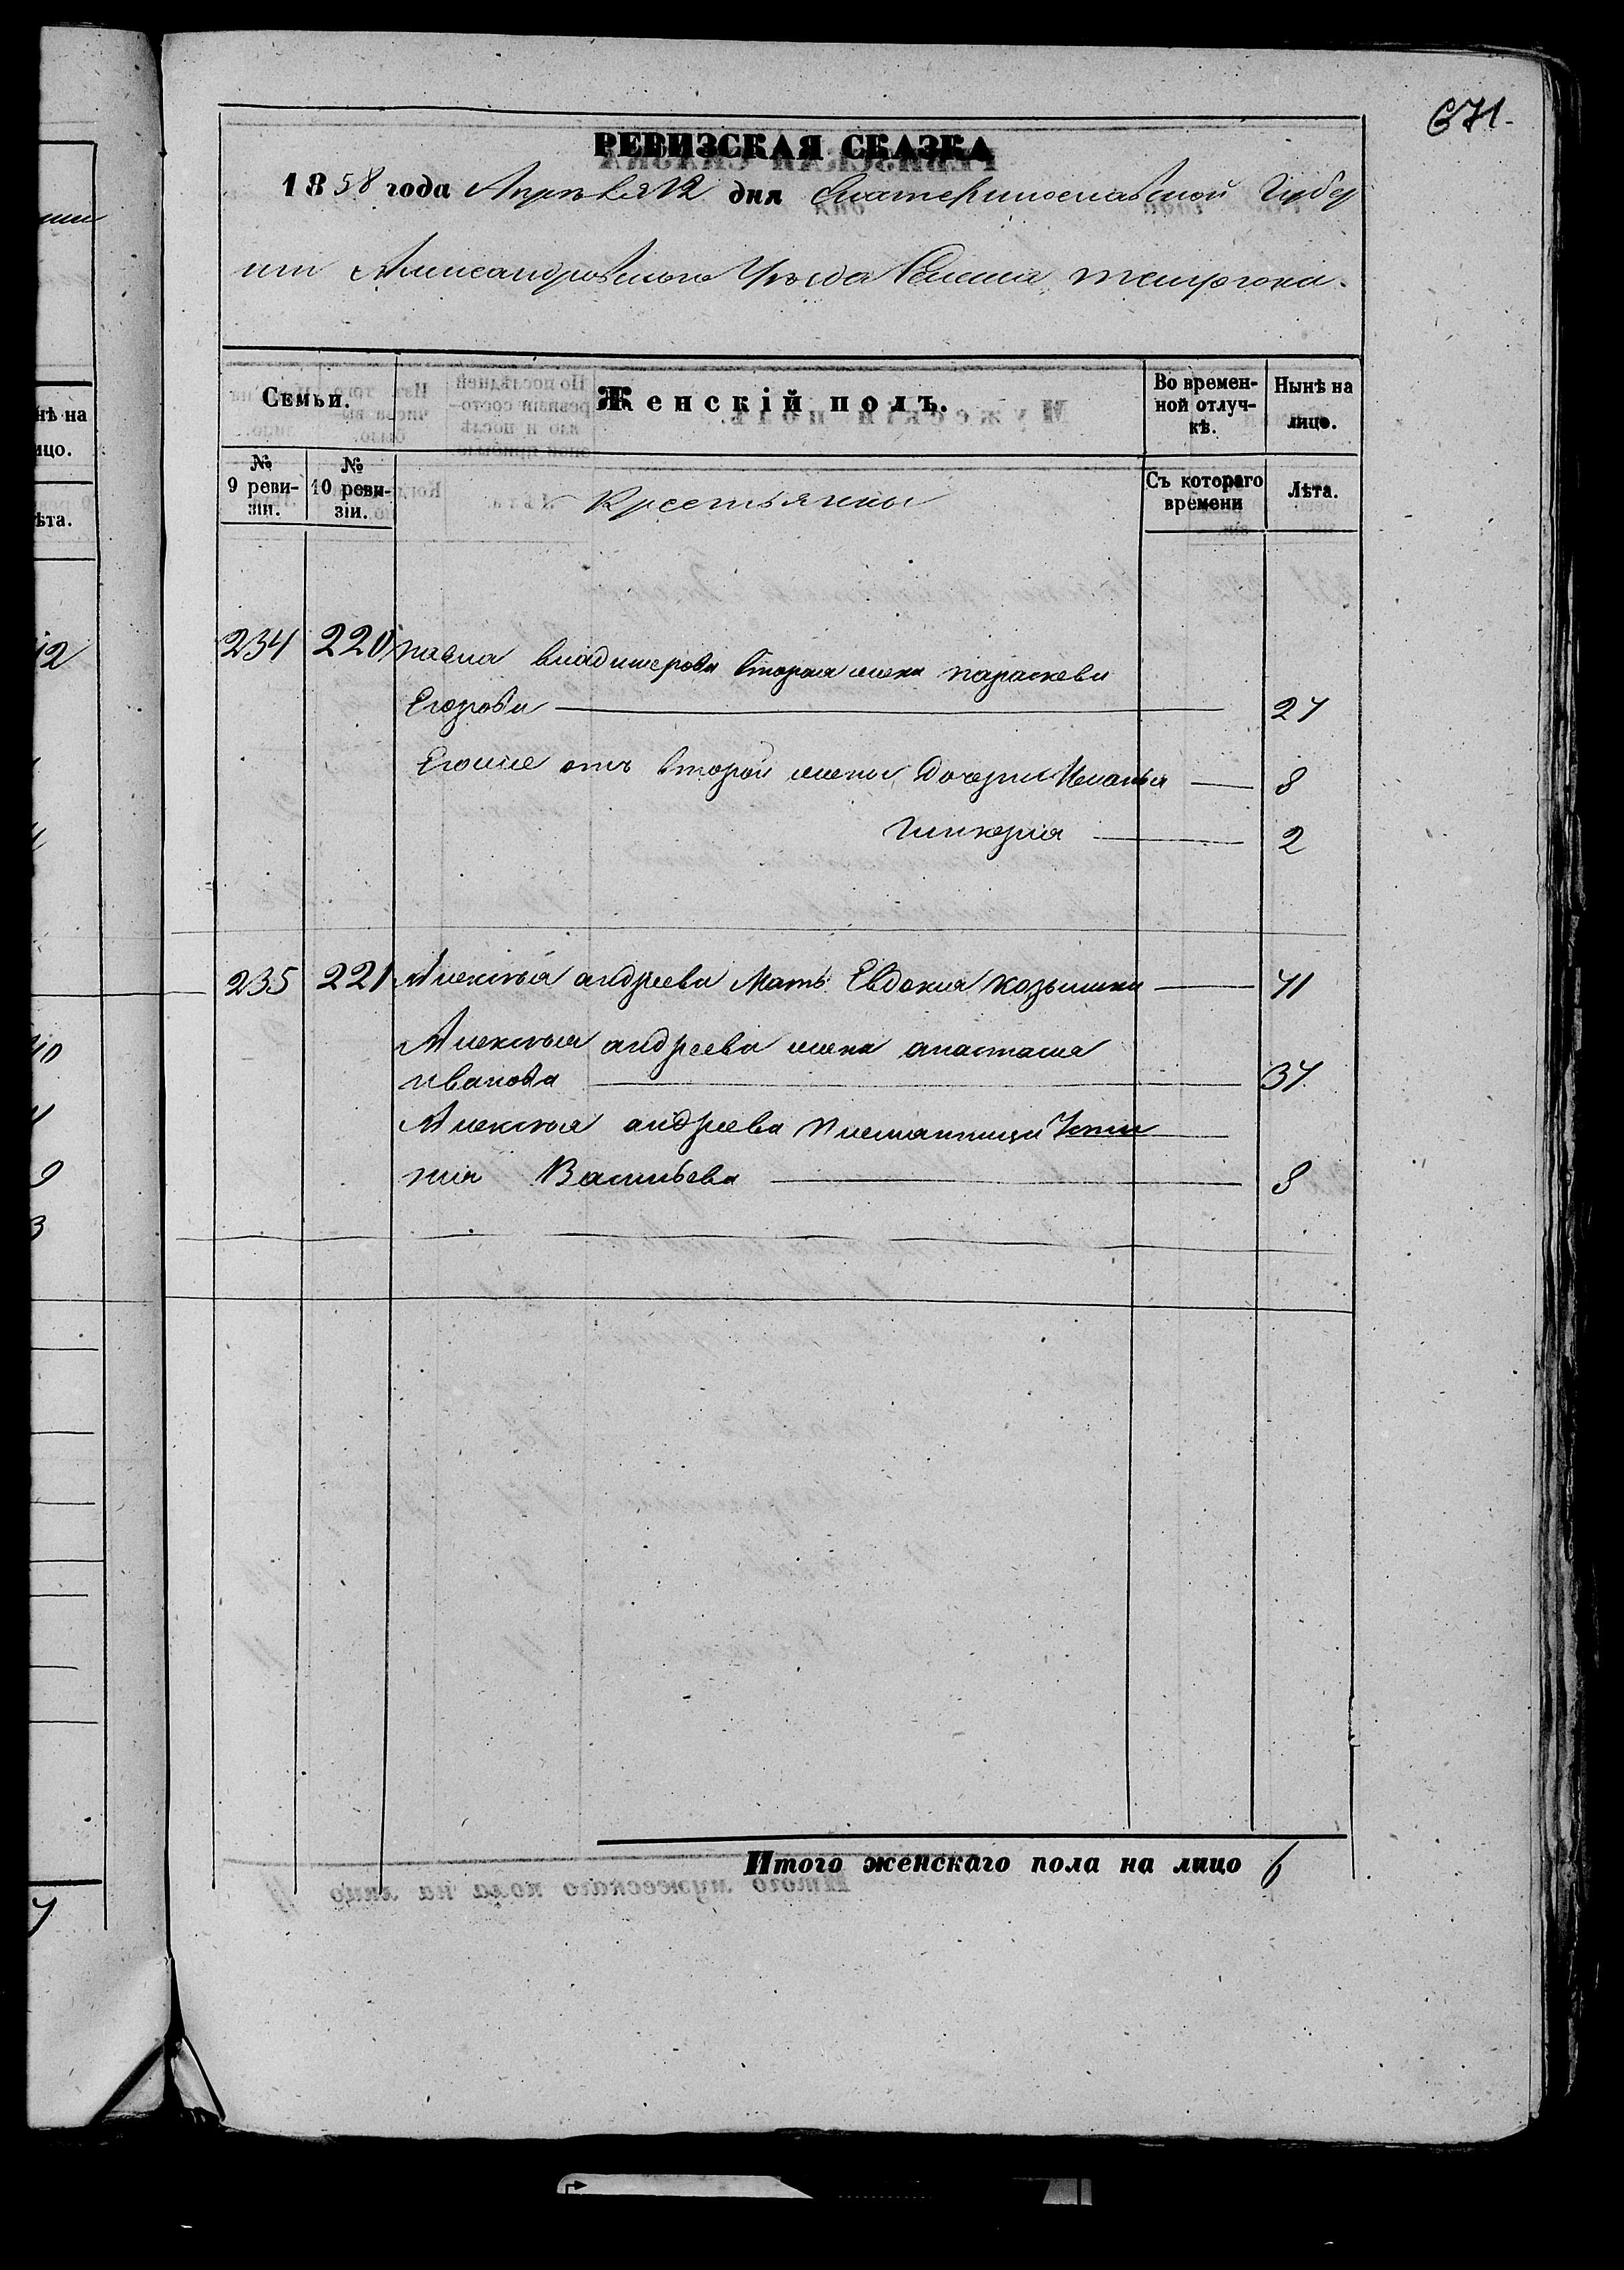 671.
РЕВИЗСКАЯ СКАЗКА
1858 года Апреля 12 дня Екатеринославской Губер
нии Александровскаго Уезда Селения
Семьи.
Женскій полъ.
Во времен-
ной отлуч-
кѣ.
Нынѣ на
лицо.
№
9 реви-
зіи.
№
10 реви-
зіи.
Крестьяне
Съ котораго
времени
Лѣта.
234 220 павла владимерова вторая жена параскева
Егорова 27
Егоже отъ второй жены дочери Меланья 8
Гликерия 2
235 221 Алексея андреева Мать Евдокия козьмина 71
Алексея андреева жена анастасия
иванова 37
Алексея андреева племянница Усти
ния Васильева 8
Итого женскаго пола на лицо 6
нѣ на
ицо.
ѣта.
12
40
9
3
7